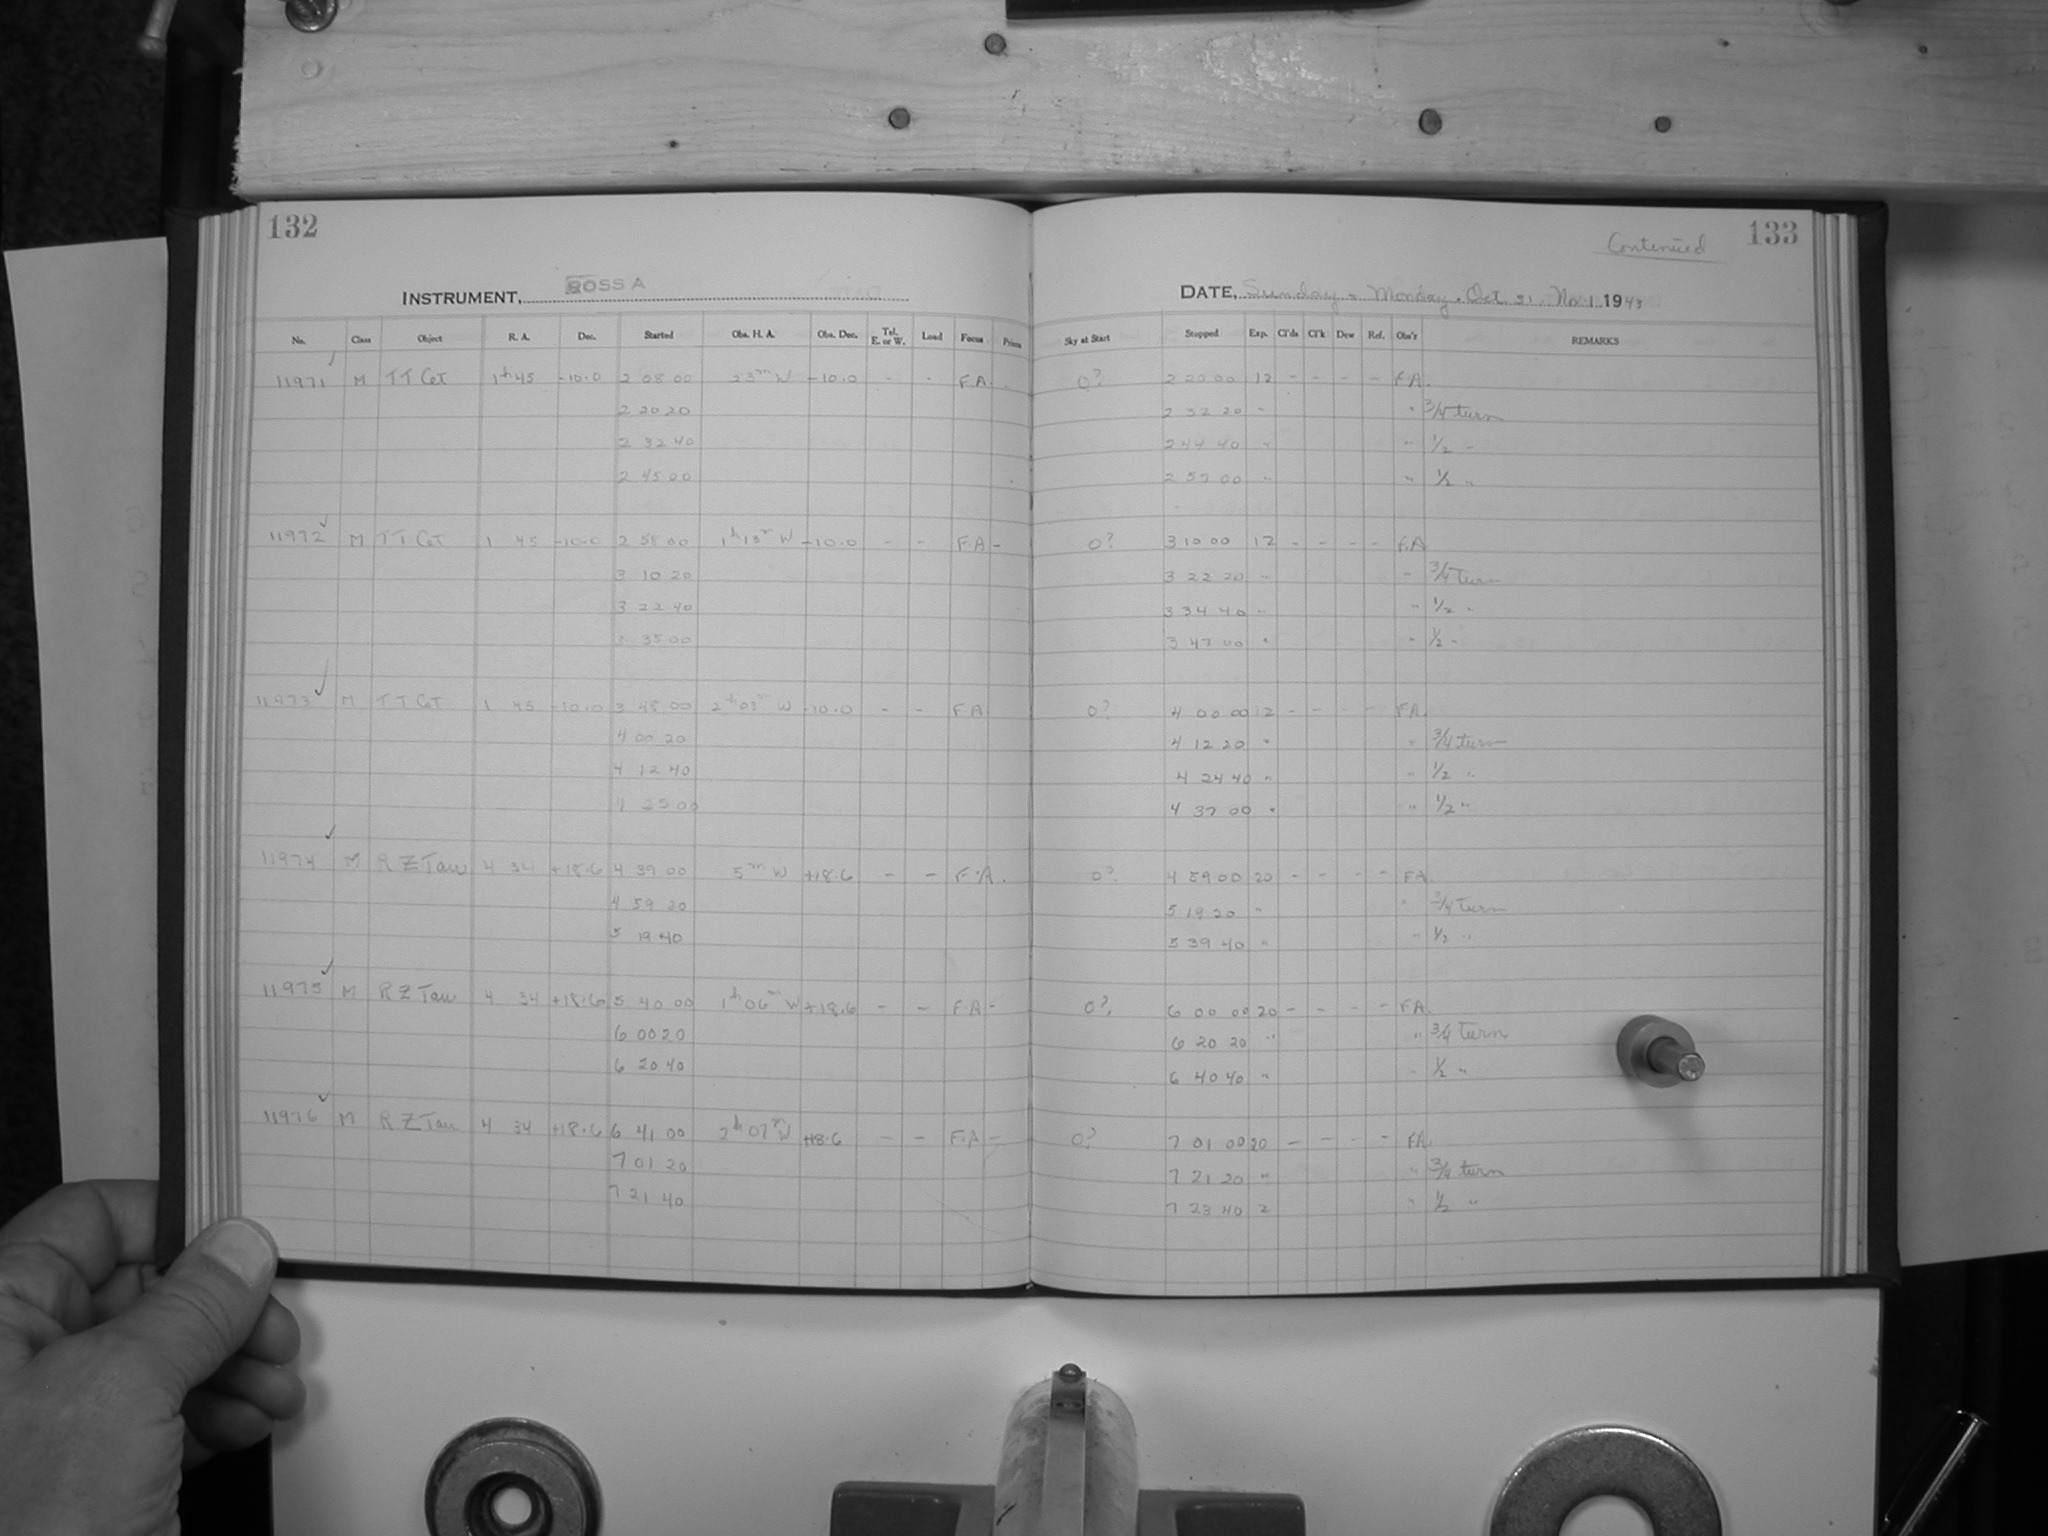 132
INSTRUMENT, ROSS A
No. Class Object R. A. Dec. Started Obs. H. A. Obs. Dec. Tel. E. or W. Load Focus Prism
11971 M TT Cet 1h 45 -10.0 2 08 00 23m W -10.0 - - F.A.
2 20 20
2 32 40
2 45 00
11972 M TT Cet 1 45 -10.0 2 58 00 1h 13m W -10.0 - - F.A -
3 10 20
3 22 40
3 35 00
11973 M TT Cet 1 45 -10.0 3 48 00 2h 03m W -10.0 - - F A
4 00 20
4 12 40
4 25 00
11974 M RZ Tau 4 34 +18.6 4 39 00 5m W +18.6 - - F.A.
4 59 20
5 19 40
11975 M RZ Tau 4 34 +18.6 5 40 00 1h 06m W +18.6 - - F.A -
6 00 20
6 20 40
11976 M RZ Tau 4 34 +18.6 6 41 00 2h 07m W +18.6 - - F.A -
7 01 20
7 21 40
Continued 133
DATE, Sunday - Monday. Oct. 31 - Nov. 1 1943
Sky at Start Stopped Exp. Cl'ds Cl'k Dew Ref. Obs'r REMARKS
0? 2 20 00 12 - - - - F A.
2 32 20 " " 3/4 turn
2 44 40 " " 1/2 "
2 57 00 " " 1/2 "
0? 3 10 00 12 - - - - F.A
3 22 20 " " 3/4 Turn
3 34 40 " " 1/2 "
3 47 00 " " 1/2 "
0? 4 00 00 12 - - - - FA.
4 12 20 " " 3/4 turn
4 24 40 " " 1/2 "
4 37 00 " " 1/2 "
0? 4 59 00 20 - - - - FA
5 19 20 " " 3/4 Turn
5 39 40 " " 1/2 "
0? 6 00 00 20 - - - FA.
6 20 20 " " 3/4 Turn
6 40 40 " " 1/2 "
0? 7 01 00 20 - - - - FA.
7 21 20 " " 3/4 turn
7 23 40 2 " 1/2 "